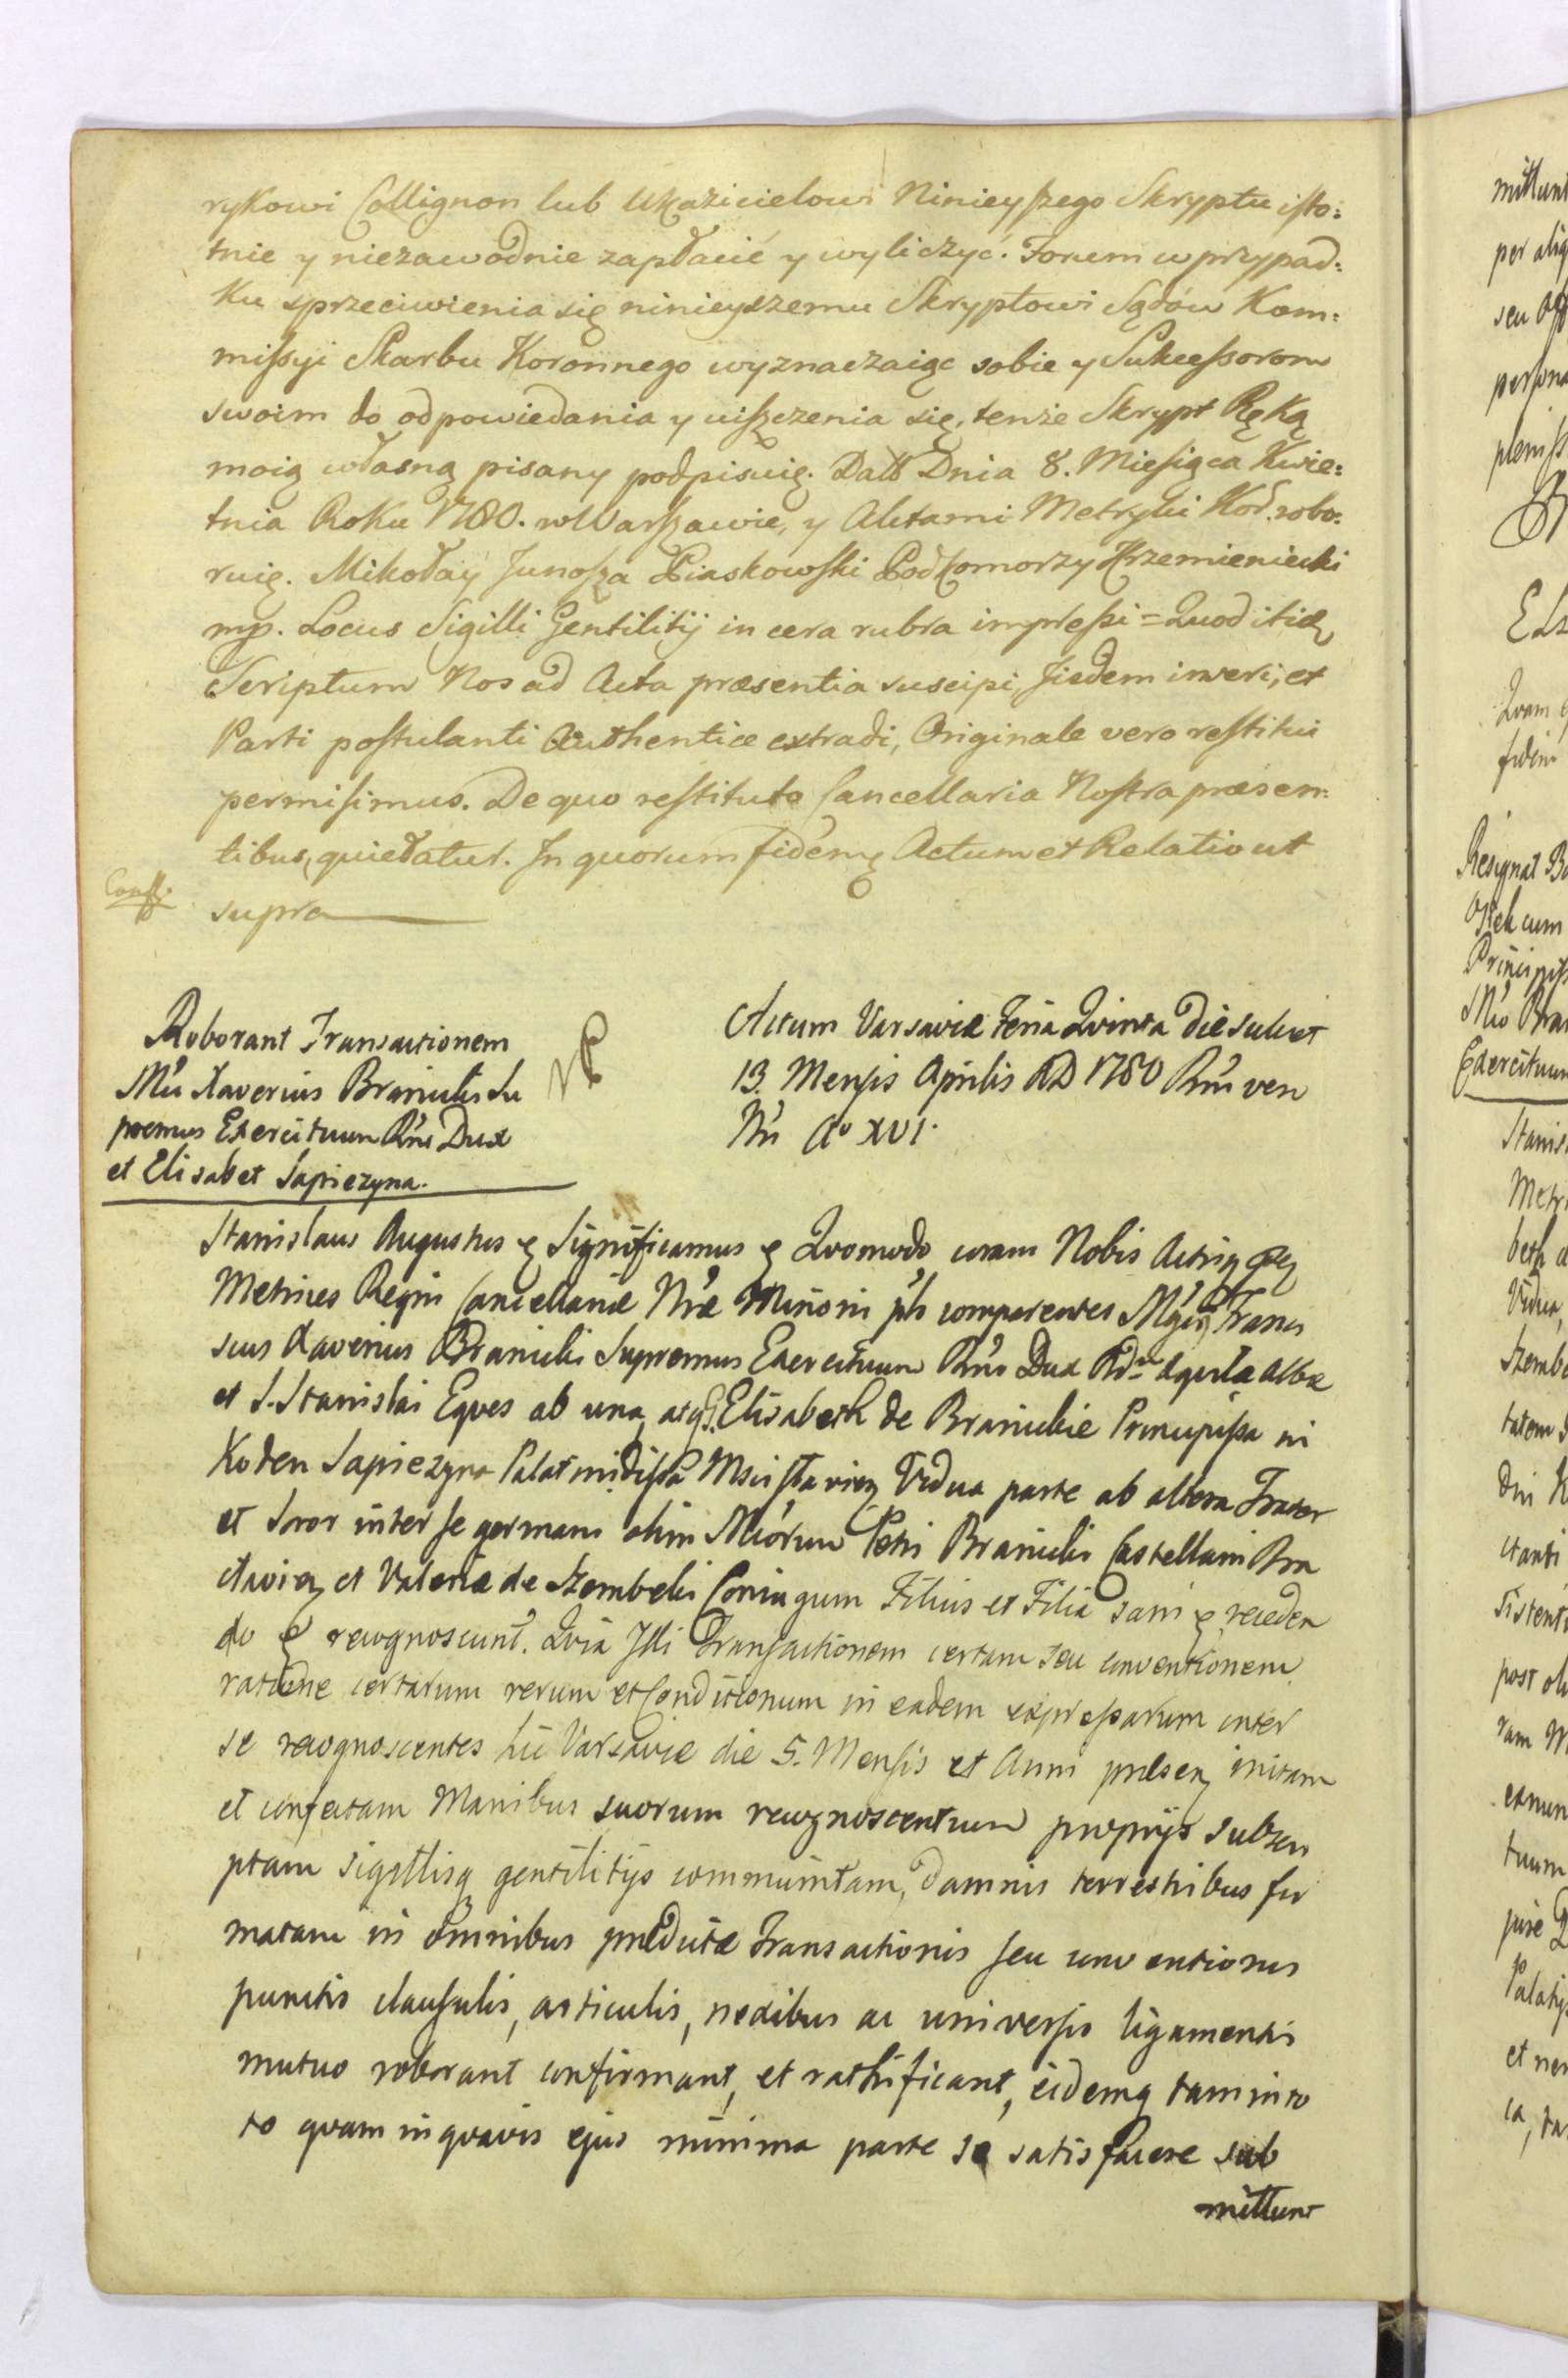 rykowi Collignon lub Ukazicielowi Ninieyszego Skryptu isto=
tnie y niezawodnie zapłacić y wyliczyć. Forum w przypad=
ku sprzeciwienia się ninieyszemu Skryptowi Sądów Kom=
missyi Skarbu Koronnego wyznaczaiąc sobie y Sukcessorom
swoim do odpowiedania y uiszczenia się, tenże Skrypt Ręką
moią własną pisany podpisuię. Datt Dnia 8. Miesiąca Kwie=
tnia Roku 1780. w Warszawie, y Aktami Metryki Kor. robo=
ruię. Mikołay Junosza Piaskowski Podkomorzy Krzemieniecki
mp. Locus Sigilli Gentilitij in cera rubra impressi = Quod itiδ
Scriptum Nos ad Acta præsentia suscipi, Jisdem inseri, et
Parti postulanti Authentice extradi, Originale vero restitui
permisimus. De quo restituto Cancellaria Nostra præsen=
tibus, quietatur. In quorum fidem Actum et Relatio ut
Conff.
supra
Roborant Transactionem
Mci Xaverius Branicki Su
premus Exercituum Rni Dux
et Elisabet Sapiezyna.
Actum Varsaviæ Feria Qvinta die sulicet
13. Mensis Aprilis AD 1780 Rni ven
Nri Ao XVI.
Stanislaus Augustus Significamus Qvomodo coram Nobis Actisq
Metrices Regni Cancellariæ Nræ Minoris pls comparentes Francis
scus Xaverius Branicki Supremus Exercituum Rni Dux Aqvilæ Albæ
et S. Stanislai Eqves ab una, atq Elisabeth de Branickie Principissa in
Koden Sapiezyna Palatinidissa Mscislavien Vidua parte ab altera Frater
et Soror inter se germani olim Mcorum Petri Branicki Castellani Bra
clavien et Valeriæ de Szembeki Coniugum Filius et Filia sani receden
do recognoscunt. Qvia Jlli Transactionem certam seu conventionem
ratione certarum rerum et Conditionum in eadem expressarum inter
se recognoscentes hic Varsaviæ die 5. Mensis et Anni præsen initam
et confectam Manibus suorum recognoscentium proprijs subscri
ptam sigillisq gentilitijs communitam, damnis terrestribus fir
matam in omnibus prædictæ Transactionis seu conventionis
punctis clausulis, articulis, nexibus ac universis ligamentis
mutuo roborant confirmant, et rathificant, eidemq tam in to
to qvam in qvavis ejus minima parte se satisfacere sub
mittunt